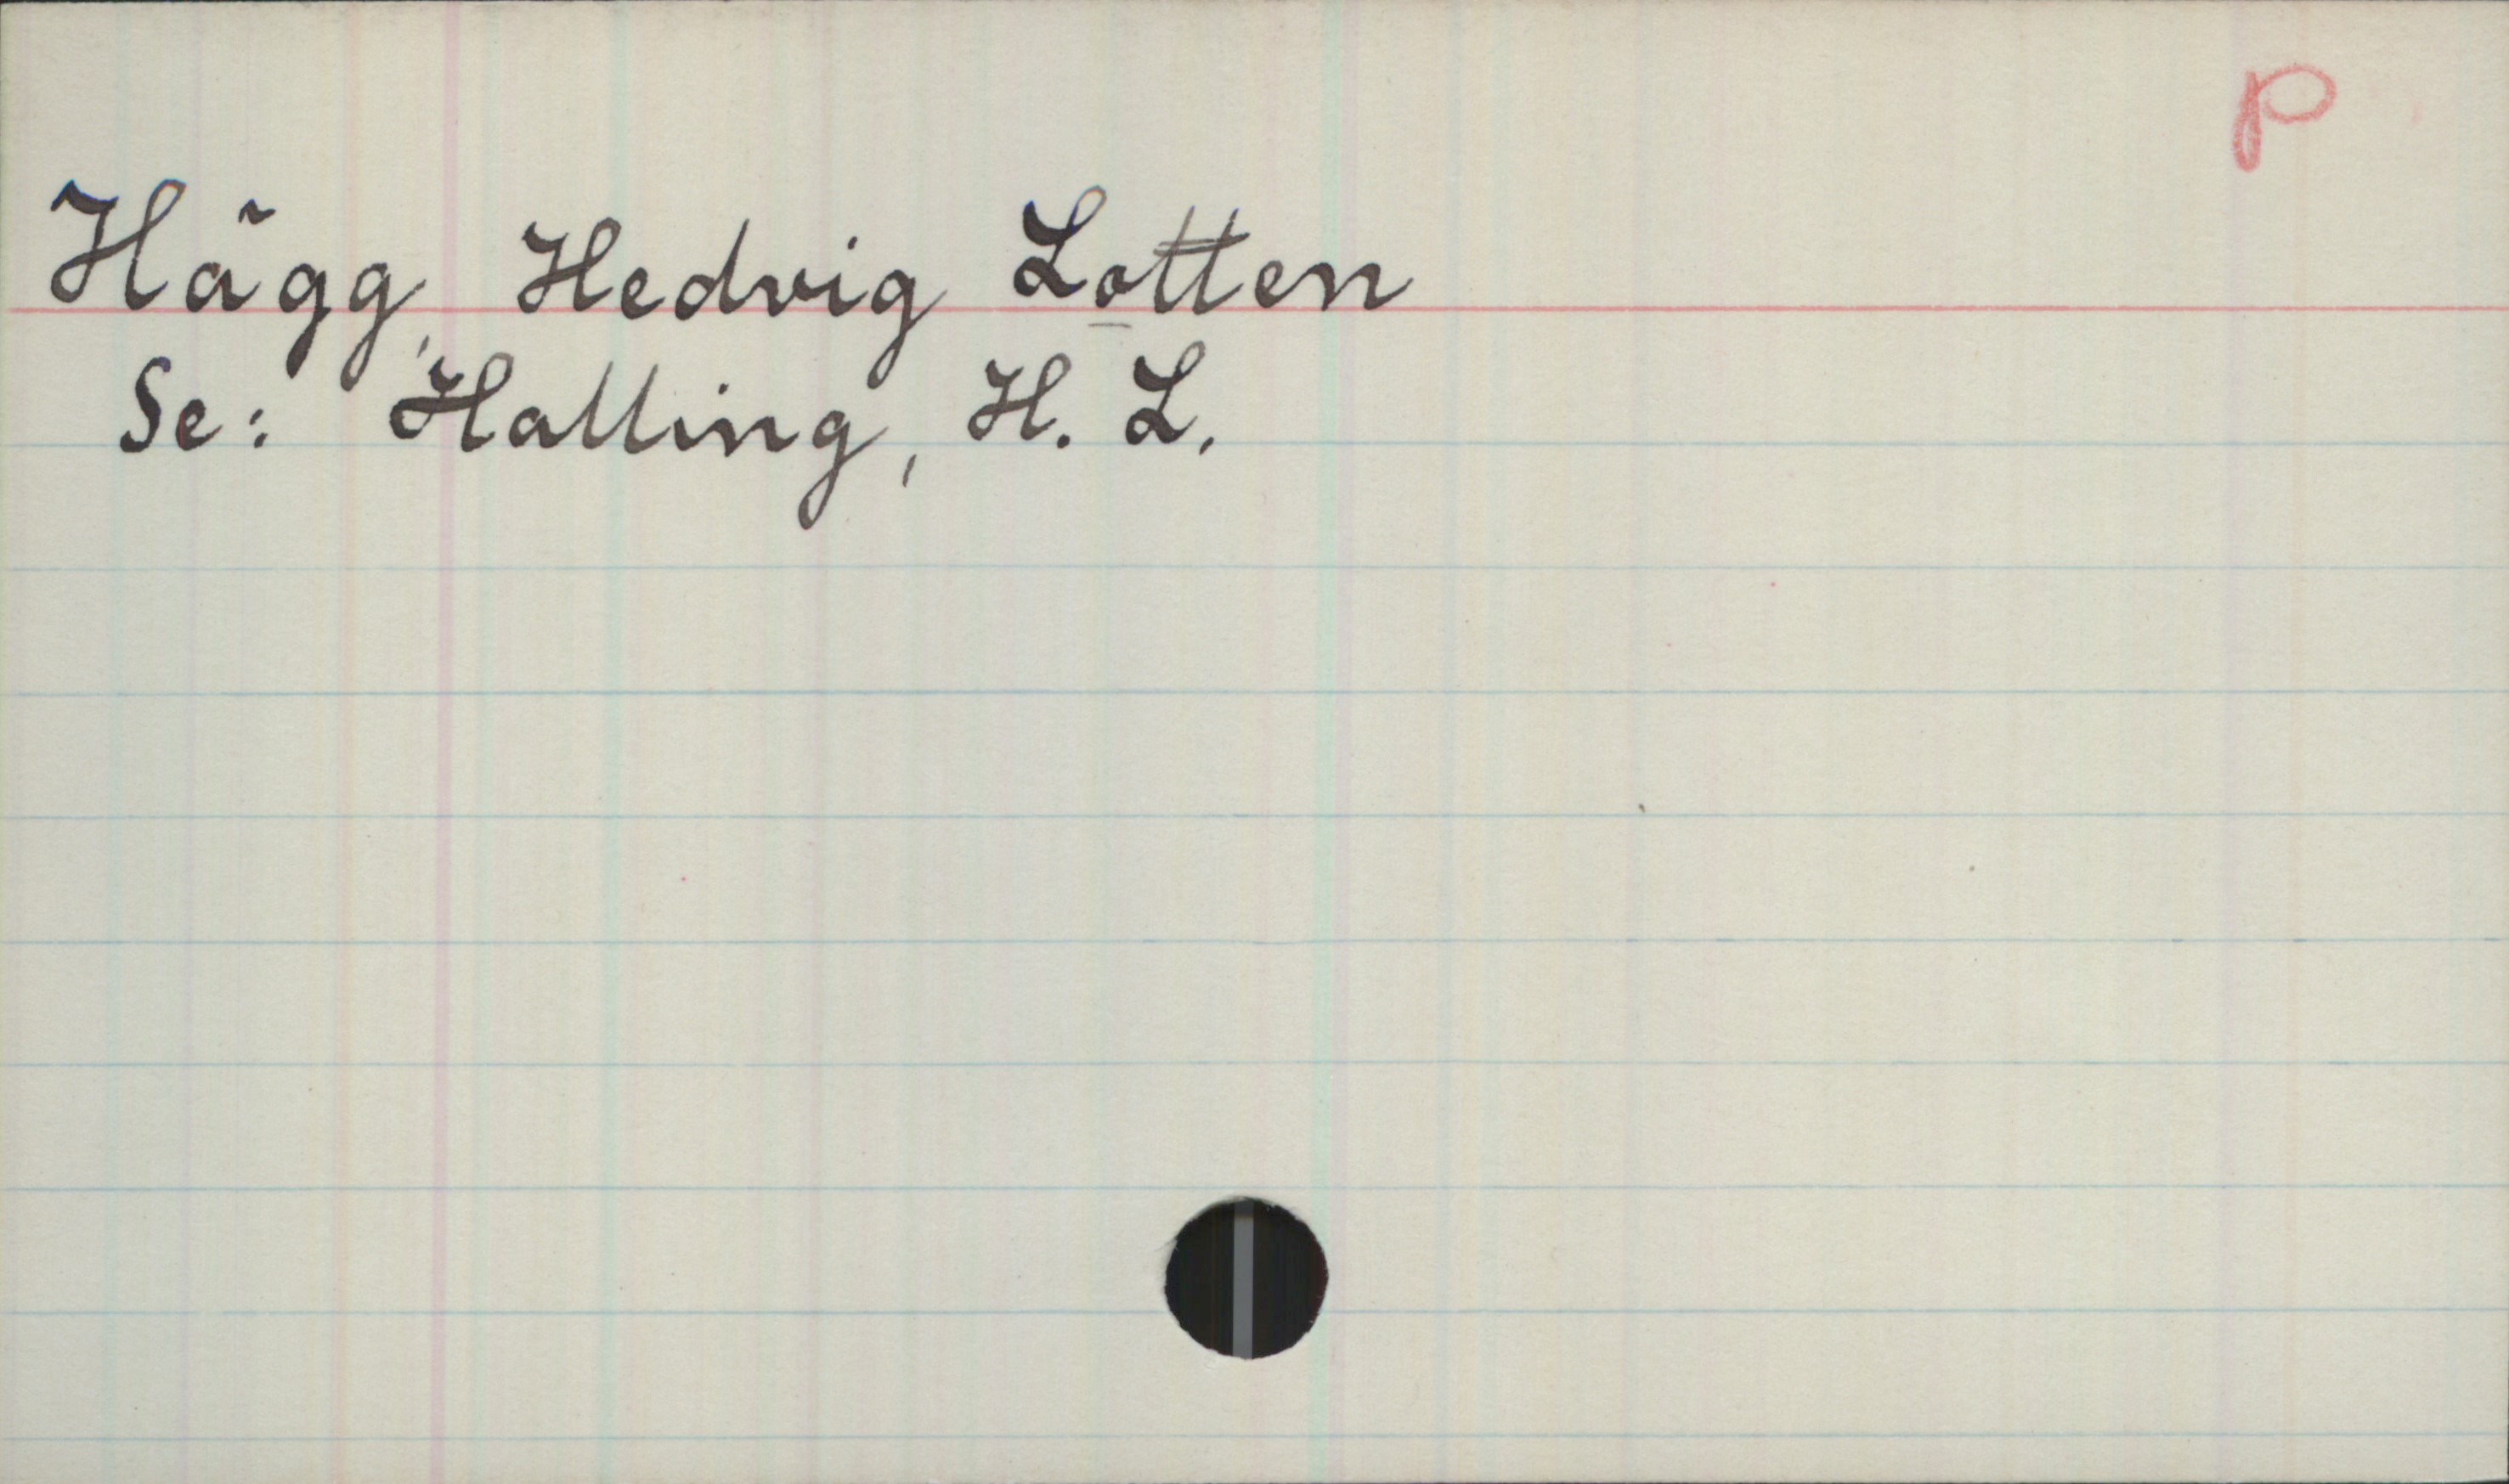 p
Hägg, Hedvig Lotten
Se: Halling, H. L.